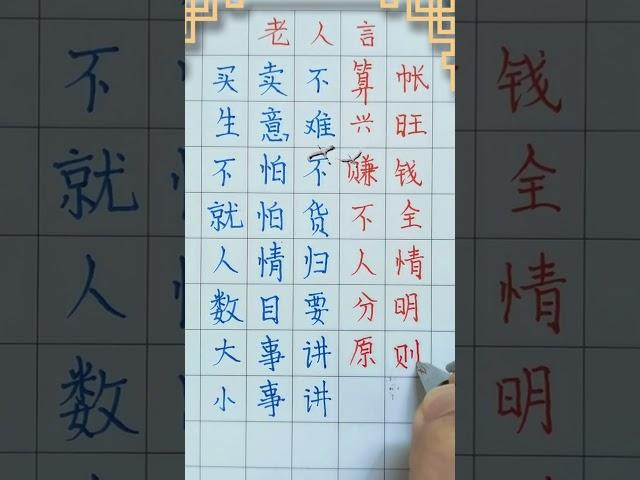 老人言
买卖不算帐
生意难兴旺
不怕不赚钱
就怕货不全
人情归人情
数目要分明
大事讲原则
小事讲